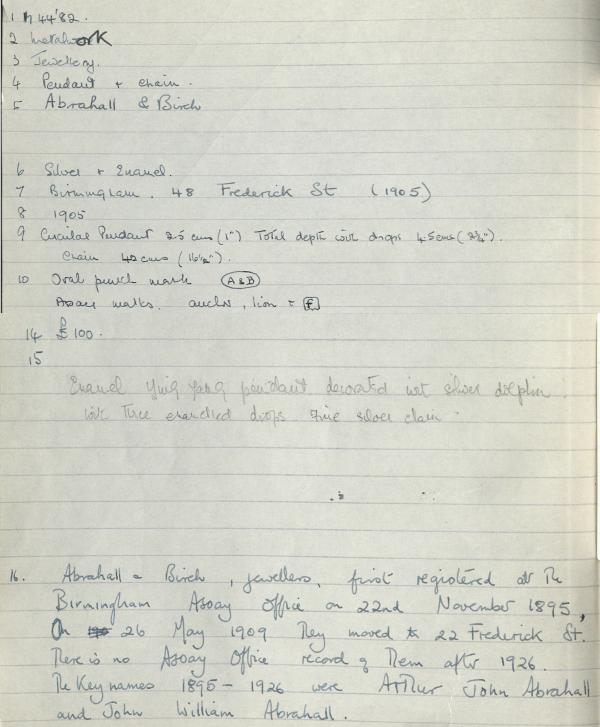 1 M 44'82.
2 Metalwork
3 Jewellery.
4 Pendant + chain.
5 Abrahall & Birch
6 Silver + Enamel.
7 Birmingham. 48 Frederick St (1905)
8 1905
9 Circular Pendant 2.5 cms (1") Total depth with drops 4.5cms
Chain 42 cms (16½").
10 Oval punch mark (A&B)
Assay marks. anchor, lion = f
14 £100.
15
Enamel Ying Yang pendant decorated with silver dolphin.
with Three enamelled drops Fine silver chain.
16. Abrahall & Birch, jewellers, first registered at The
Birmingham Assay Office on 22nd November 1895,
On 26 May 1909 They moved to 22 Frederick St.
There is no Assay Office record of Them after 1926.
The Key names 1895 - 1926 were Arthur John Abrahall
and John William Abrahall.